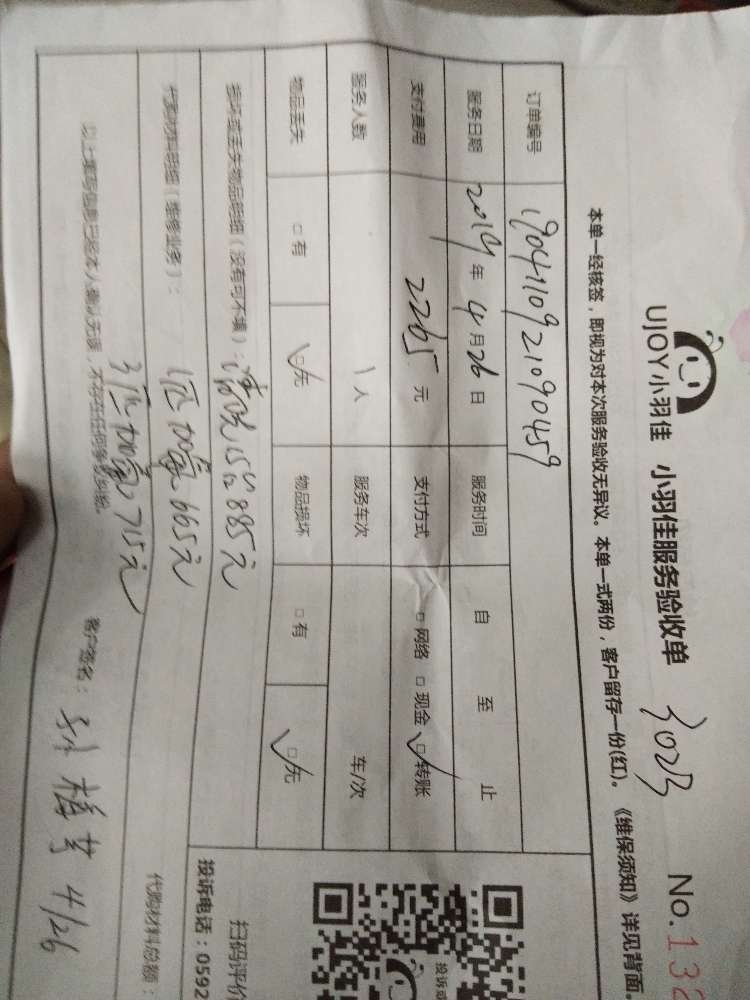 UJOY小羽佳 小羽佳服务验收单 3023 No.132
本单一经核签，即视为对本次服务验收无异议。本单一式两份，客户留存一份(红)。《维保须知》详见背面
订单编号 1904110921090459
服务日期 2019年4月26日 服务时间 自 至 止
支付费用 2265元 支付方式 □网络 □现金 ☑转账
服务人数 1人 服务车次 车/次
物品丢失 □有 ☑无 物品损坏 □有 ☑无
损坏或丢失物品明细（没有可不填）： 清洗15台885元
代购材料明细（维修业务）： 1匹加氟665元
3匹加氟715元 代购材料总额：
以上填写信息已经本人确认无误，不存在任何争议纠纷。 客户签名： 孙梅芳 4/26
扫码评价
投诉电话：0592
投诉或